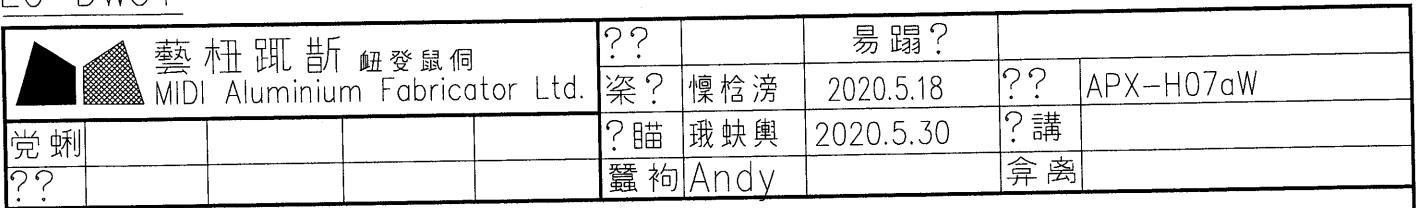 ?? 易蹋?
藝杻踂斮 衄癹鼠侗
MIDI Aluminium Fabricator Ltd. 桬? 懍梒滂 2020.5.18 ?? APX-H07aW
党蜊 ?瞄 珴蚗輿 2020.5.30 ?講
?? 蠶袧 Andy 弇离